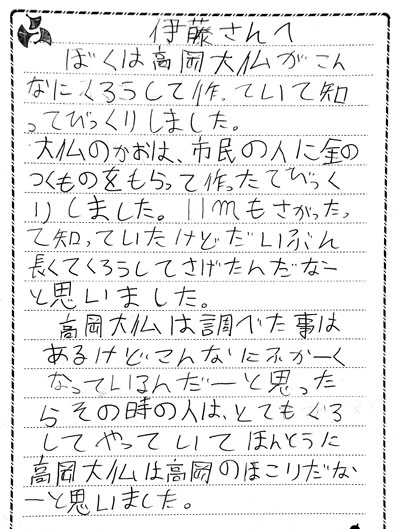 伊藤さんへ
ぼくは高岡大仏がこん
なにくろうして作っていて知
ってびっくりしました。
大仏のかおは、市民の人に金の
つくものをもらって作ったてびっく
りしました。11mもさがったっ
て知っていたけどだいぶん
長くてくろうしてさげたんだなー
と思いました。
高岡大仏は調べた事は
あるけどこんなにふかーく
なっているんだーと思った
らその時の人は、とてもくろ
してやっていてほんとうに
高岡大仏は高岡のほこりだな
ーと思いました。